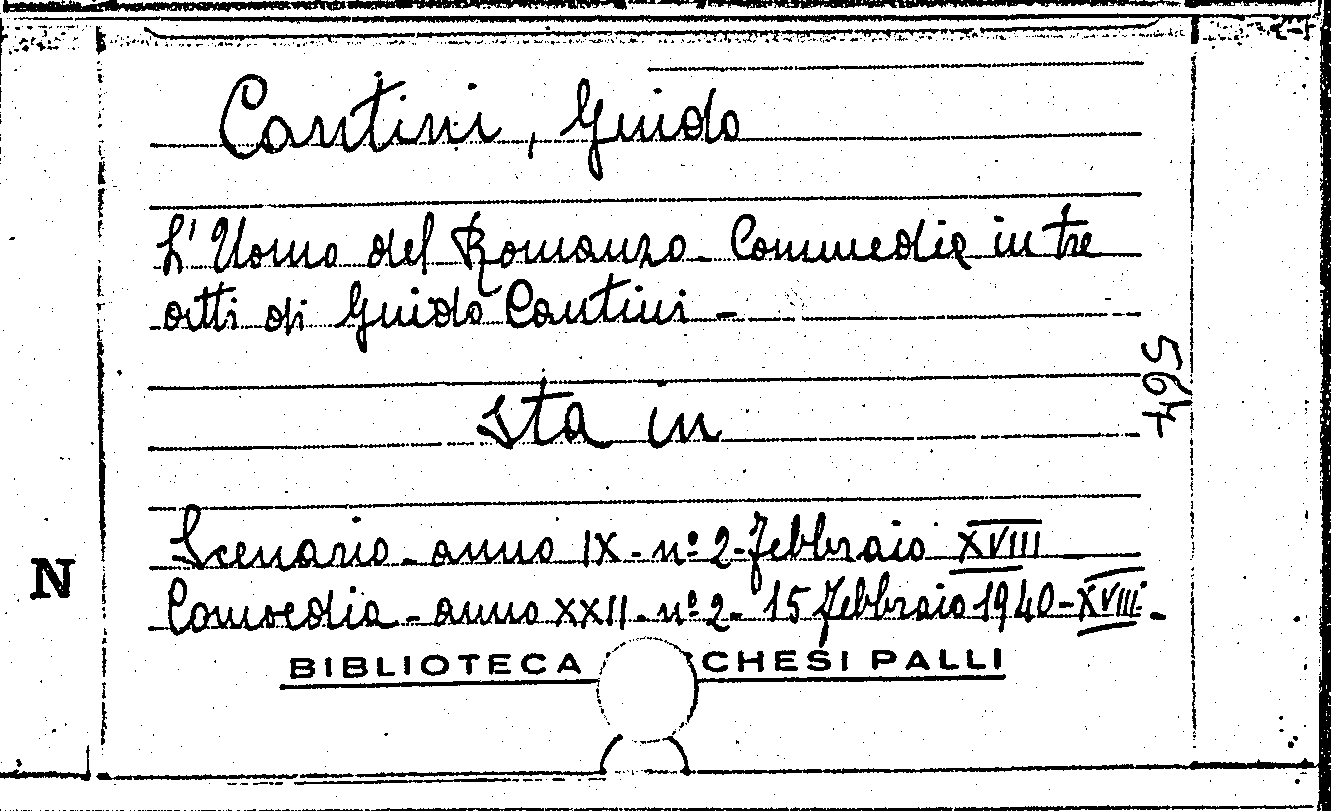 Cantini, Guido
L'Uomo del Romanzo - Commedia in tre
atti di Guido Cantini -
sta in
Scenario - anno IX - nº 2 - febbraio XVIII
Comoedia - anno XXII - nº 2 - 15 febbraio 1940 - XVIII -
BIBLIOTECA CHESI PALLI
N
564